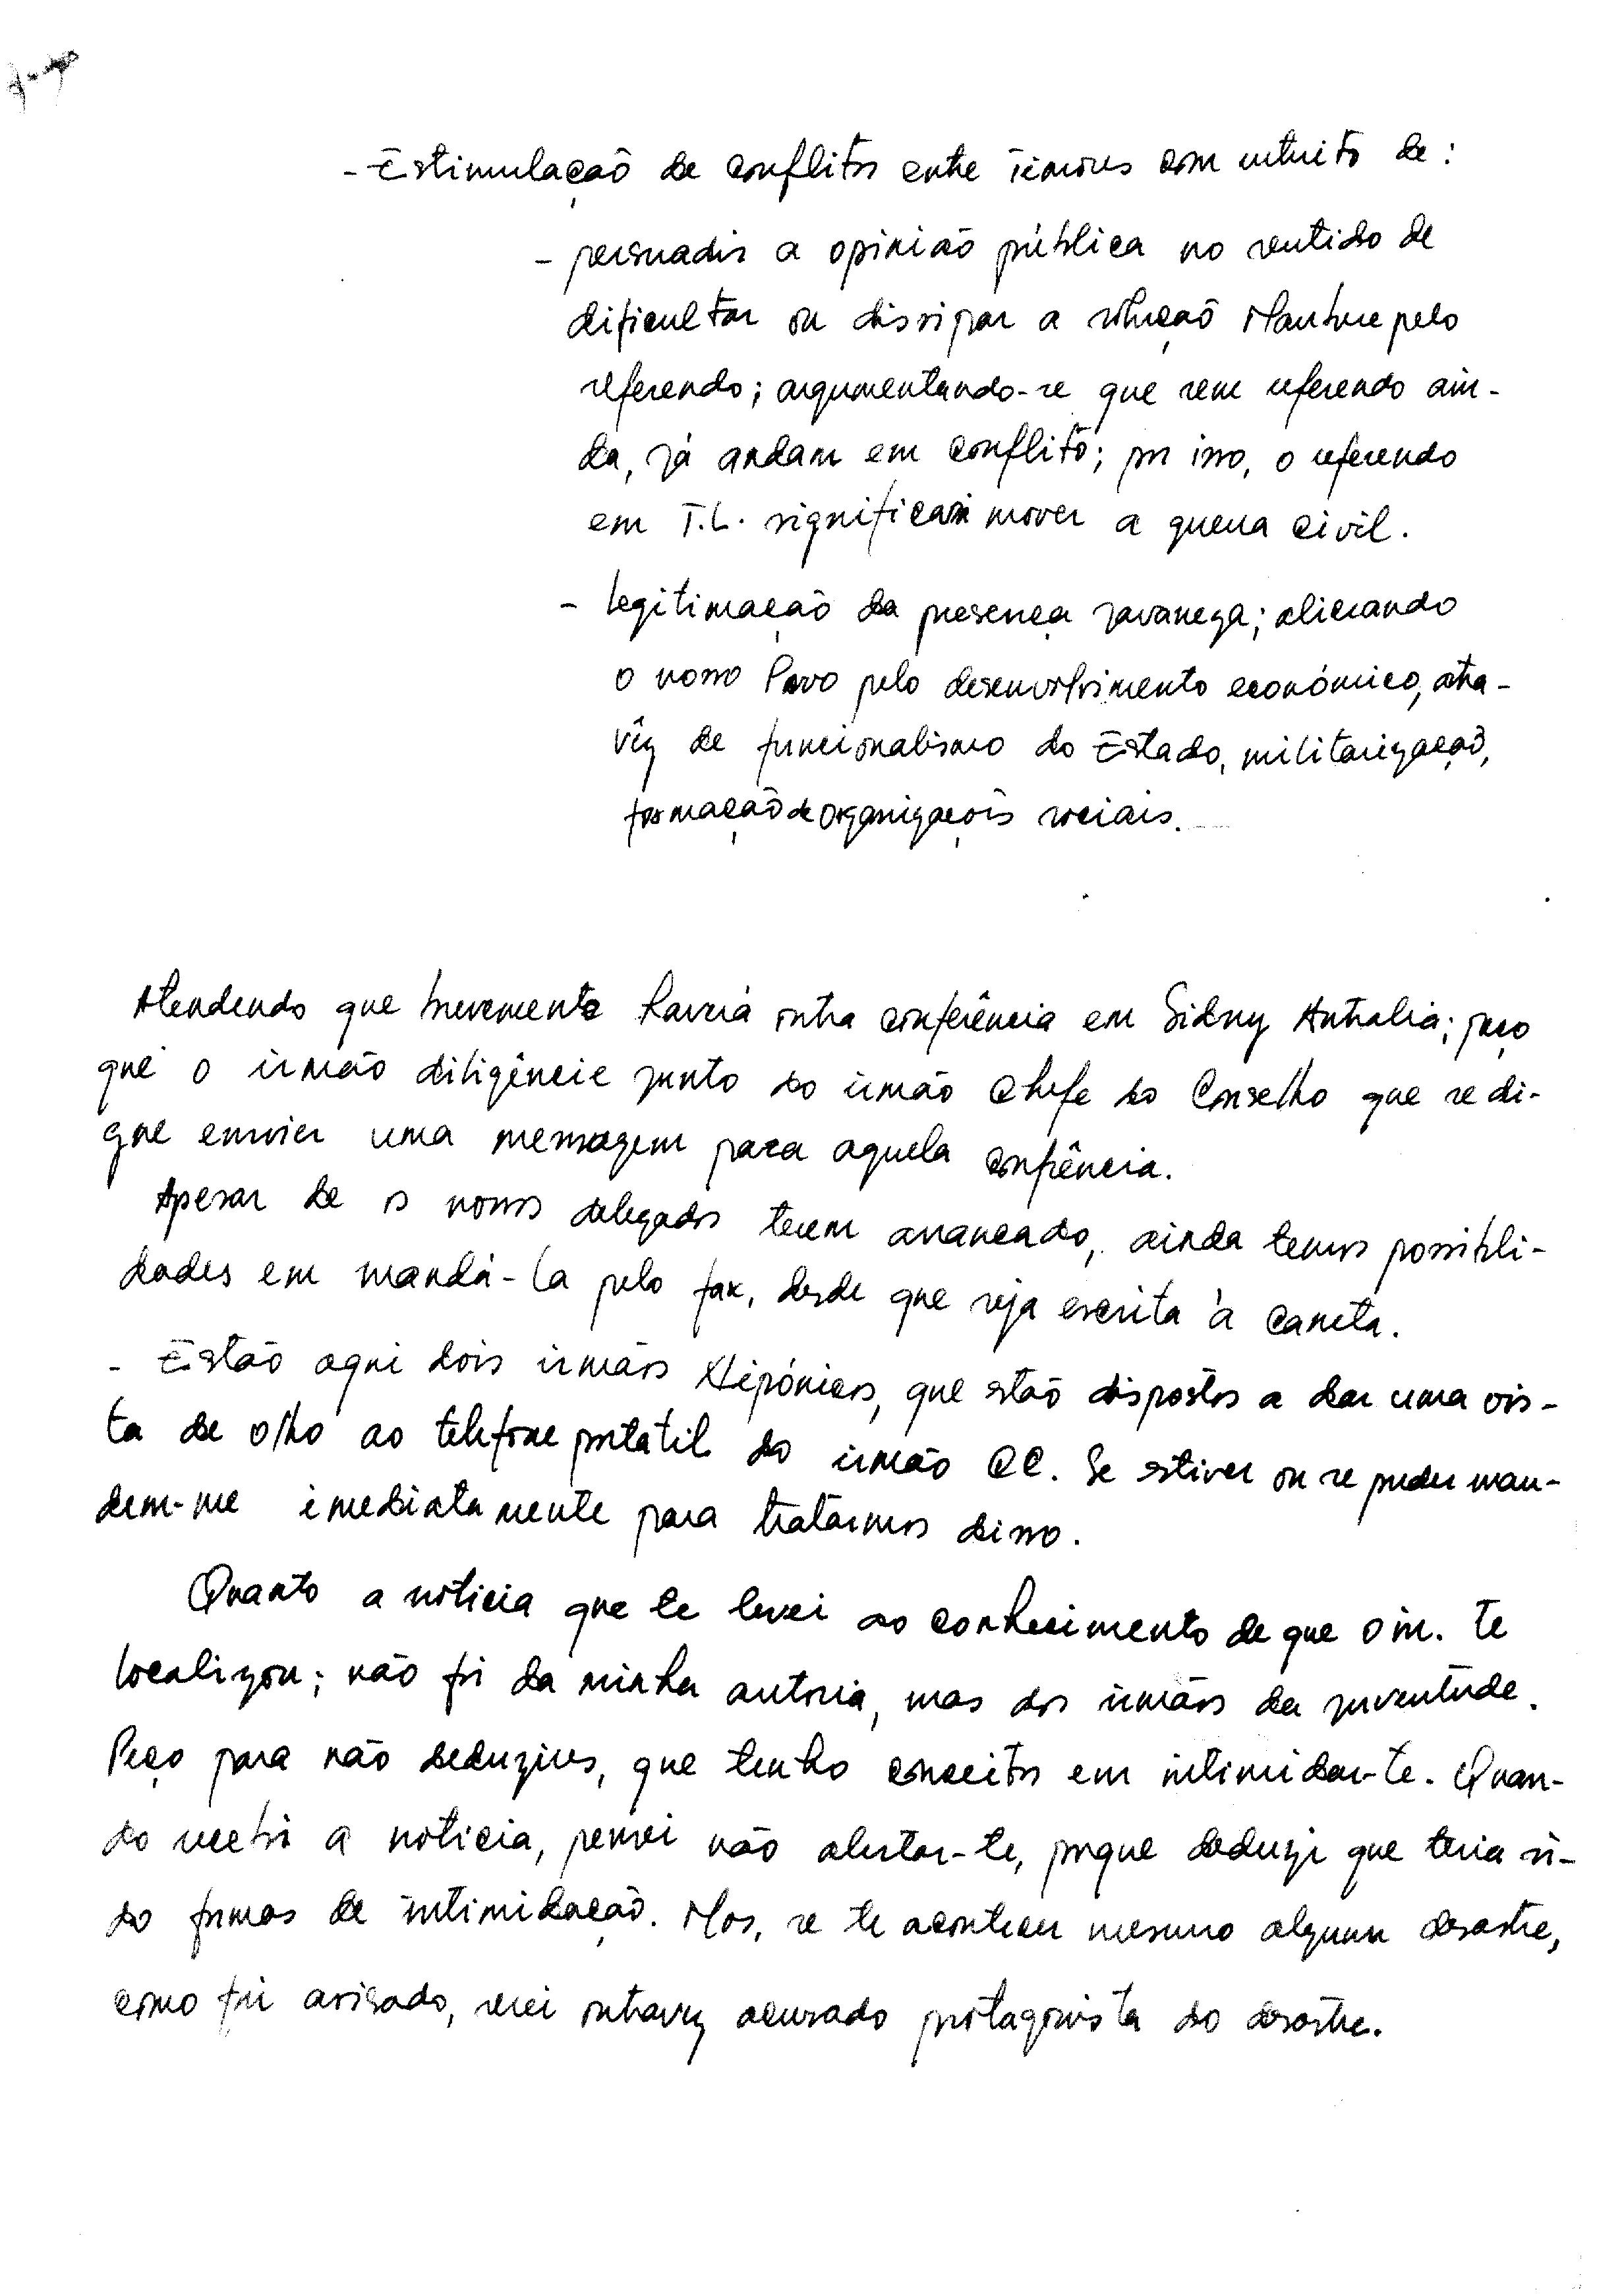 - Estimulação de conflitos entre Timores com intuito de:
- persuadir a opinião pública no sentido de
dificultar ou dissipar a solução Maubere pelo
referendo; argumentando-se que sem referendo ain-
da, já andam em conflito; por isso, o referendo
em T.L. significará mover a guerra civil.
- legitimação da presença javaneza; aliciando
o nosso Povo pelo desenvolvimento económico, atra-
vêz de funcionalismo do Estado, militarização,
formação de organizações sociais.
Atendendo que brevemente haverá outra conferência em Sidny Australia; peço
que o irmão diligêncie junto do irmão Chefe do Conselho que se di-
gne enviar uma mensagem para aquela confrência.
Apesar de os nossos delegados terem avançado, ainda temos possibili-
dades em mandá-la pelo fax, desde que seja escrita à caneta.
- Estão aqui dois irmãos Nipónicos, que estão dispostos a dar uma vis-
ta de olho ao telefone portátil do irmão CC. Se estiver ou se puder man-
dem-me imediatamente para tratármos disso.
Quanto a noticia que te levei ao conhecimento de que o in. te
localizou; não foi da minha autoria, mas dos irmãos da juventude.
Peço para não deduzires, que tenho conceitos em intimidar-te. Quan-
do recebi a noticia, pensei não alertar-te, porque deduzi que teria si-
do formas de intimidação. Mas, se te acontecer mesmo algum desastre,
como foi avisado, serei outravez acusado protagonista do desastre.